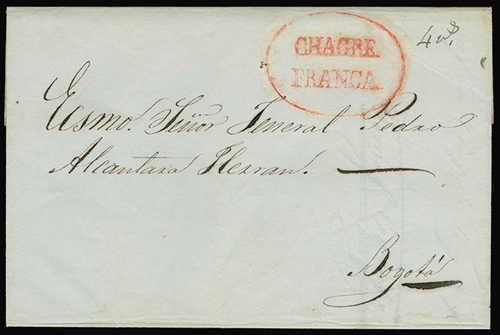 CHAGRE.
FRANCA.
4 rs.
Escmo. Señor General Pedro
Alcantara Herran.
Bogotá